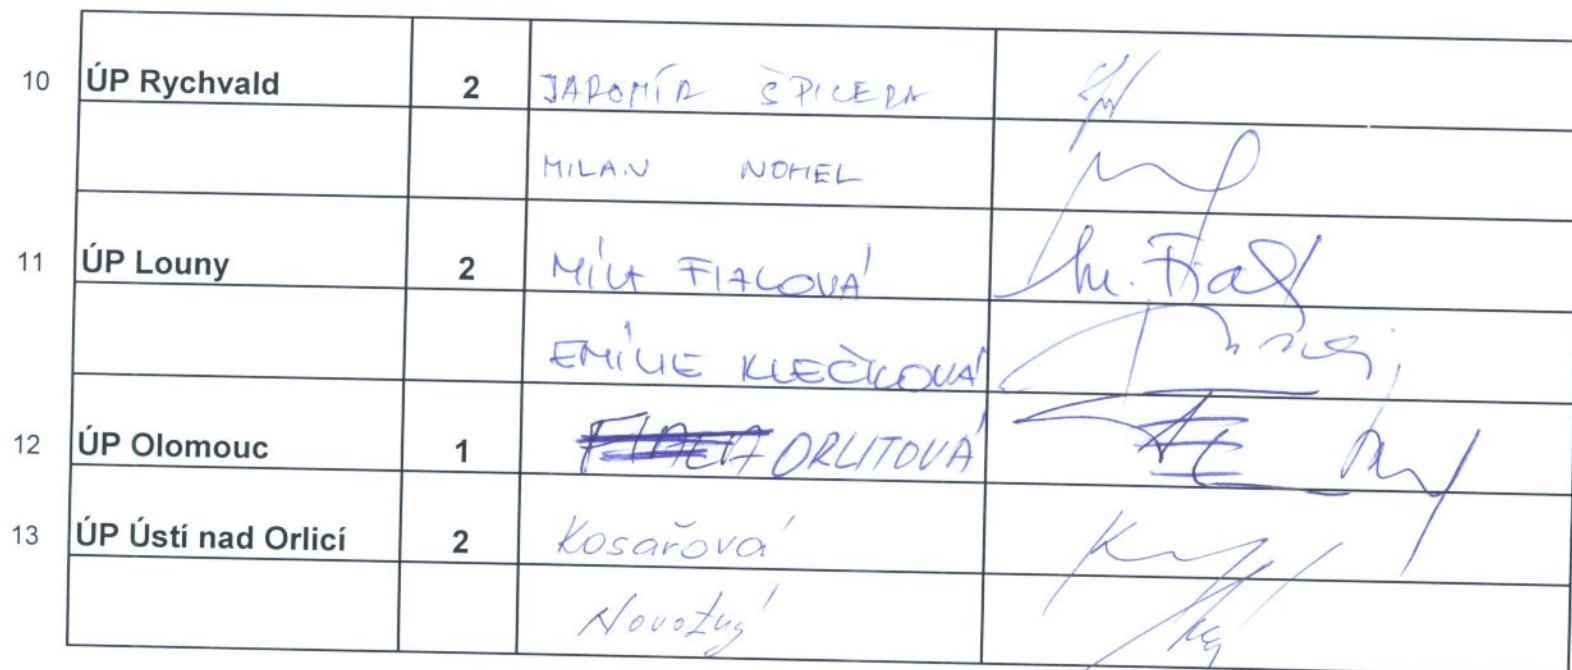 10 ÚP Rychvald 2 JAROMÍR ŠPICERA
MILAN NOHEL
11 ÚP Louny 2 MÍLA FIALOVÁ M. Fial
EMÍLIE KLEČKOVÁ
12 ÚP Olomouc 1 ORLITOVÁ
13 ÚP Ústí nad Orlicí 2 Kosařová
Novotný